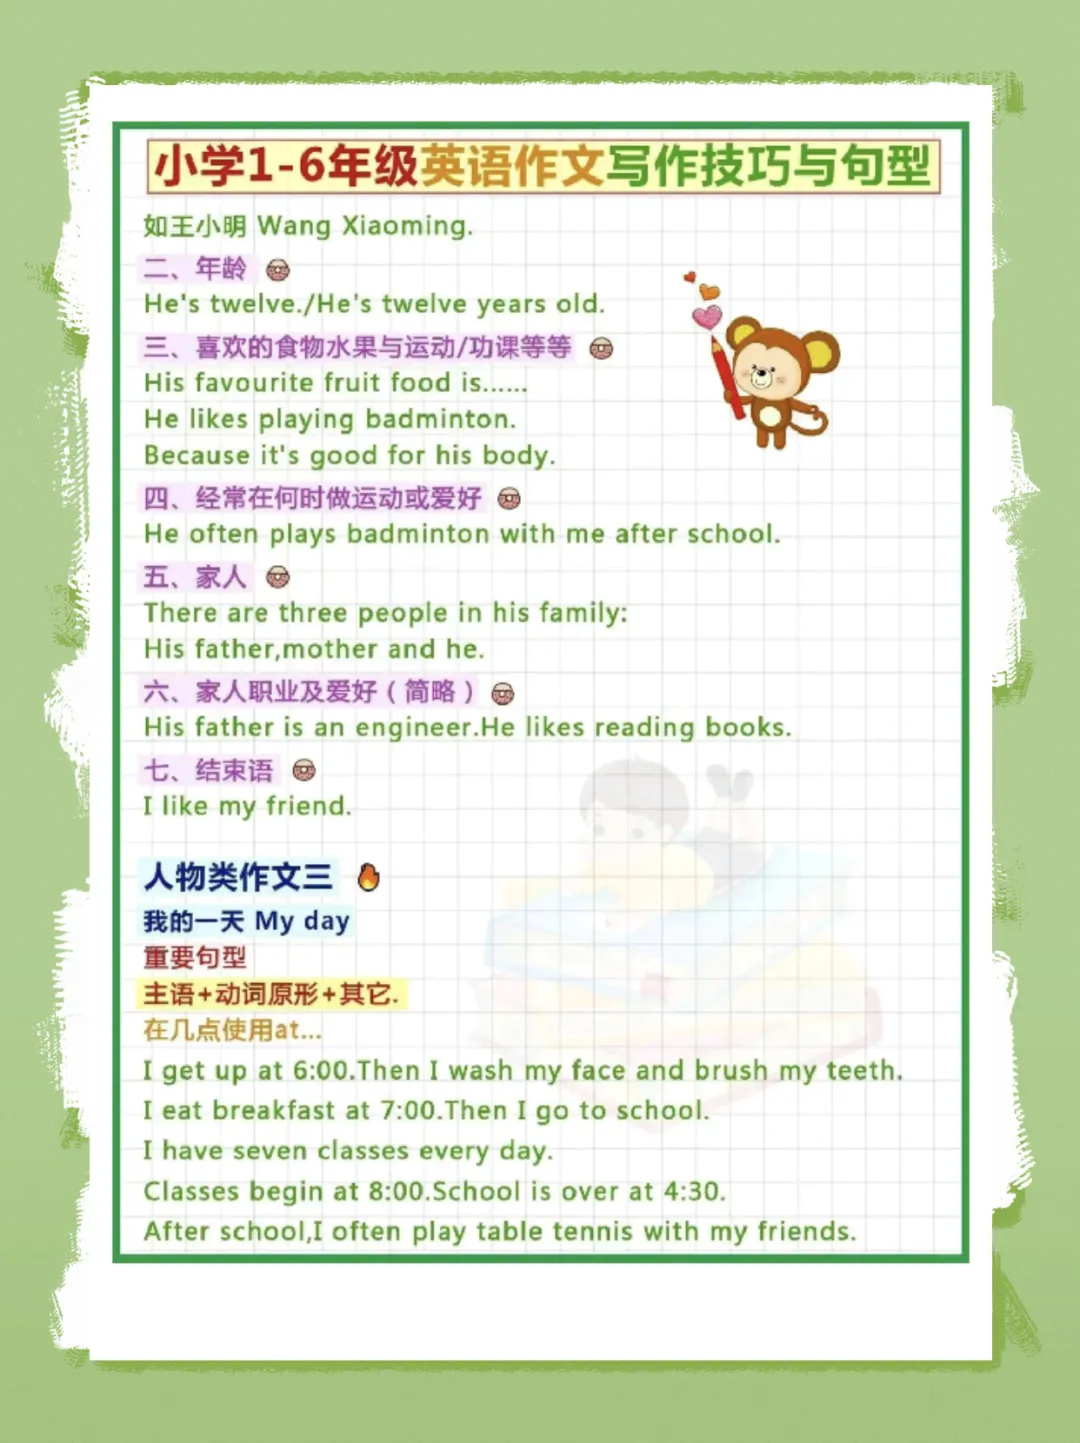 小学1-6年级英语作文写作技巧与句型
如王小明 Wang Xiaoming.
二、年龄
He's twelve./He's twelve years old.
三、喜欢的食物水果与运动/功课等等
His favourite fruit food is......
He likes playing badminton.
Because it's good for his body.
四、经常在何时做运动或爱好
He often plays badminton with me after school.
五、家人
There are three people in his family:
His father,mother and he.
六、家人职业及爱好（简略）
His father is an engineer.He likes reading books.
七、结束语
I like my friend.
人物类作文三
我的一天 My day
重要句型
主语+动词原形+其它.
在几点使用at...
I get up at 6:00.Then I wash my face and brush my teeth.
I eat breakfast at 7:00.Then I go to school.
I have seven classes every day.
Classes begin at 8:00.School is over at 4:30.
After school,I often play table tennis with my friends.